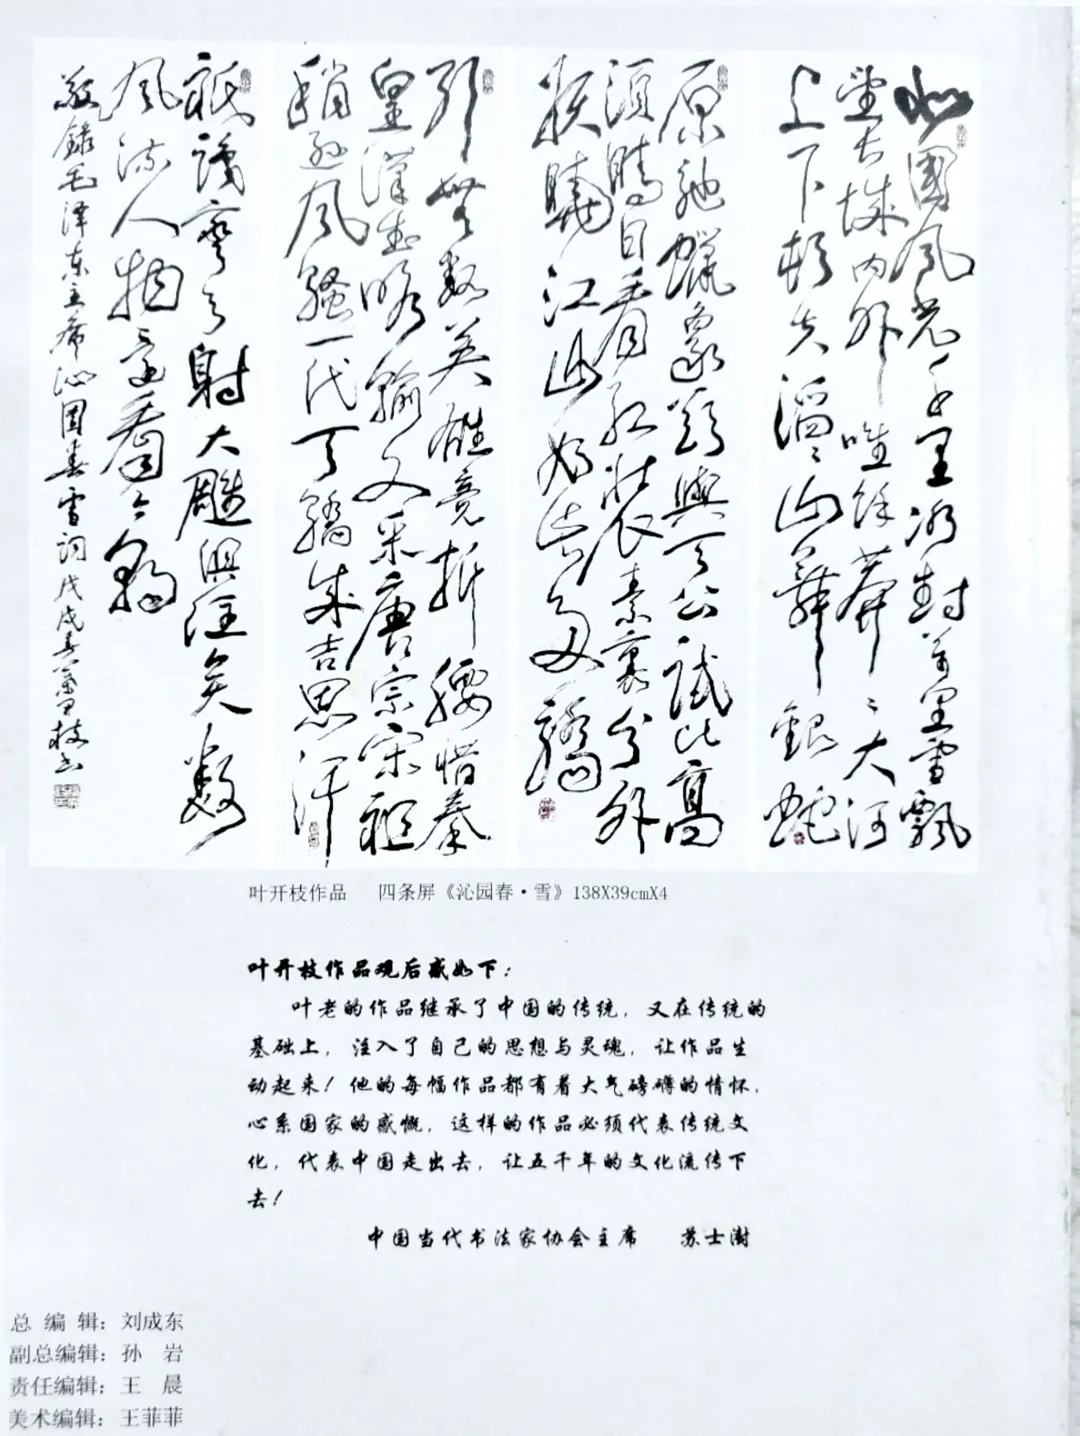 北國風光千里冰封萬里雪飄
望长城内外唯餘莽〻大河
上下顿失滔〻山舞銀蛇
原馳蠟象欲與天公試比高
須晴日看红装素裹分外
妖嬈江山如此多嬌
引無数英雄竞折腰惜秦
皇漢武略输文采唐宗宋祖
稍逊風騷一代天驕成吉思汗
祇識弯弓射大雕俱往矣数
風流人物還看今朝
敬録毛泽东主席沁園春雪詞戊戌春葉開枝书
叶开枝作品 四条屏《沁园春·雪》138X39cmX4
叶开枝作品观后感如下：
叶老的作品继承了中国的传统，又在传统的
基础上，注入了自己的思想与灵魂，让作品生
动起来！他的每幅作品都有着大气磅礴的情怀，
心系国家的感慨，这样的作品必须代表传统文
化，代表中国走出去，让五千年的文化流传下
去！
中国当代书法家协会主席 苏士澍
总 编 辑：刘成东
副总编辑：孙 岩
责任编辑：王 晨
美术编辑：王菲菲